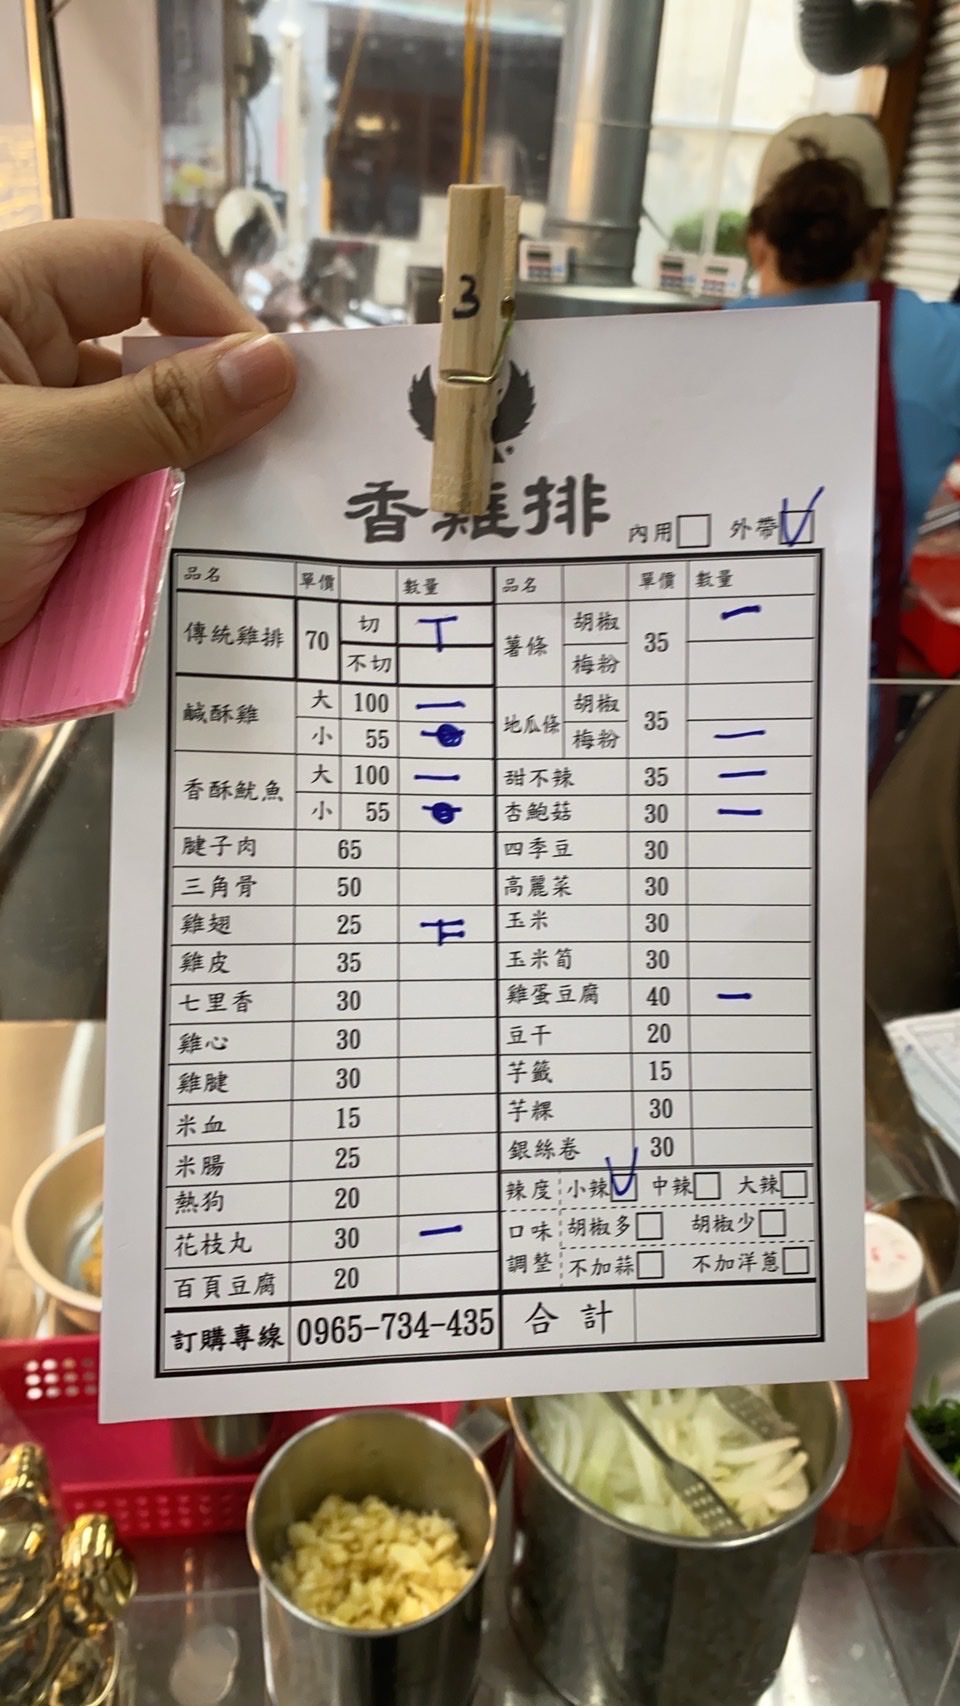 3
香雞排
內用 外帶
品名 單價 數量 品名 單價 數量
傳統雞排 70 切 薯條 胡椒 35 一
不切 梅粉
鹹酥雞 大 100 一 地瓜條 胡椒 35
小 55 梅粉 一
香酥魷魚 大 100 一 甜不辣 35 一
小 55 杏鮑菇 30 一
腱子肉 65 四季豆 30
三角骨 50 高麗菜 30
雞翅 25 玉米 30
雞皮 35 玉米筍 30
七里香 30 雞蛋豆腐 40 一
雞心 30 豆干 20
雞腱 30 芋籤 15
米血 15 芋粿 30
米腸 25 銀絲卷 30
熱狗 20 辣度 小辣 中辣 大辣
花枝丸 30 一 口味 胡椒多 胡椒少
百頁豆腐 20 調整 不加蒜 不加洋蔥
訂購專線 0965-734-435 合計